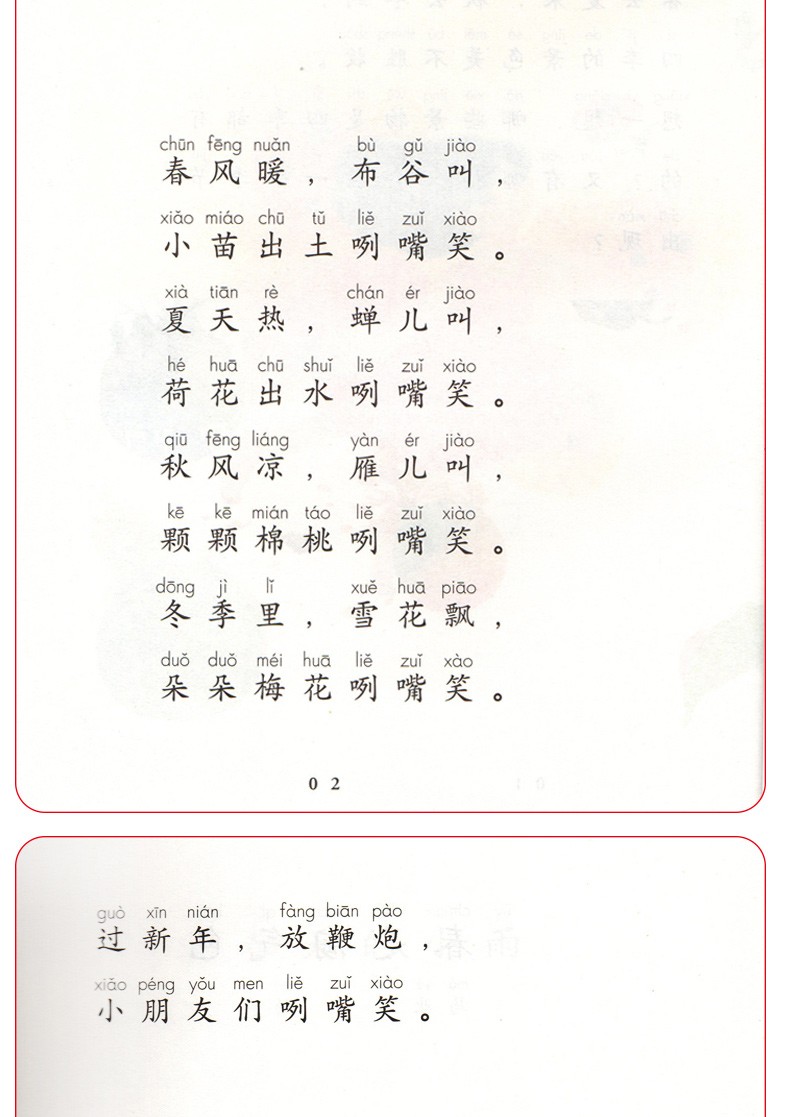 chūn fēng nuǎn bù gǔ jiào
春风暖，布谷叫，
xiǎo miáo chū tǔ liě zuǐ xiào
小苗出土咧嘴笑。
xià tiān rè chán ér jiào
夏天热，蝉儿叫，
hé huā chū shuǐ liě zuǐ xiào
荷花出水咧嘴笑。
qiū fēng liáng yàn ér jiào
秋风凉，雁儿叫，
kē kē mián táo liě zuǐ xiào
颗颗棉桃咧嘴笑。
dōng jì lǐ xuě huā piāo
冬季里，雪花飘，
duǒ duǒ méi huā liě zuǐ xào
朵朵梅花咧嘴笑。
02
guò xīn nián fàng biān pào
过新年，放鞭炮，
xiǎo péng yǒu men liě zuǐ xiào
小朋友们咧嘴笑。